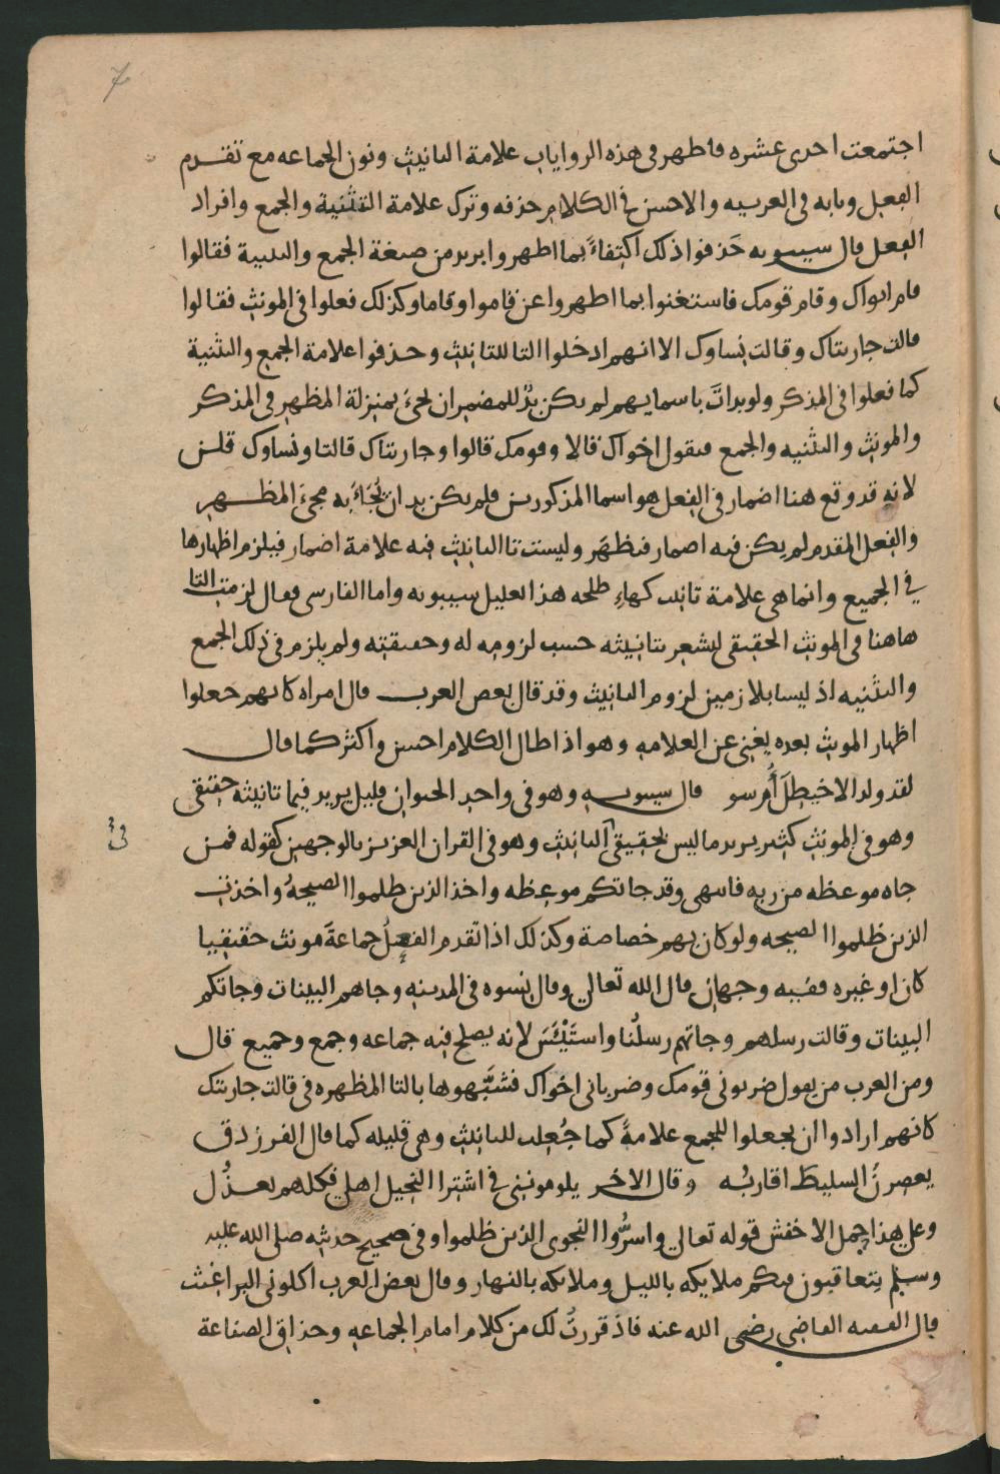 7
اجتمعت احدى عشره فاظهر فى هذه الروايات علامة التانيث ونون الجماعه مع تقدم
الفعل وبابه فى العربيه والاحسن فى الكلام حذفه وترك علامة التثنية والجمع وافراد
الفعل قال سيبويه حَذفوا ذلك اكتفاءً بما اظهروا يريد من صيغة الجمع والتثنية فقالوا
قام ابواك وقام قومك فاستغنوا بما اظهروا عن قاموا وقاما وكذلك فعلوا فى المونث فقالوا
قالت جاريتاك وقالت نساوك الا انهم ادخلوا التا للتانيث وحذفوا علامة الجمع والتثنية
كما فعلوا فى المذكر ولو بدات باسمايهم لم يكن بدٌ للمضمر ان يجئ بمنزلة المظهر فى المذكر
والمونث والتثنيه والجمع فتقول اخواك قالا وقومك قالوا وجاريتاك قالتا ونساوك قلن
لانه قد وقع هنا اضمار فى الفعل هو اسما المذكورين فلم يكن بد ان يُجَاءَ به مجئ المظهر
والفعل المقدم لم يكن فيه اضمار فتظهَر وليست تا التانيث فيه علامة اضمار فيلزم اظهارها
فى الجميع وانما هى علامة تانيث كهاءِ طلحه هذا تعليل سيبويه واما الفارسى فقال لزمت التا
هاهنا فى المونث الحقيقى ليشعر بتانيثه حسب لزومه له وحقيقته ولم يلزم فى ذلك الجمع
والتثنيه اذ ليسا بلازمين لزوم التانيث وقد قال بعض العرب قال امراه كانهم جعلوا
اظهار المونث بعده يغنى عن العلامه وهو اذا طال الكلام احسن واكثر كما قال
لقد ولد الاخيطلَ أُم سو قال سيبويه وهو فى واحد الحيوان قليل يريد فيما تانيثه حقيقى
وهو فى المونث كثير يريد ما ليس بحقيقى التانيث وهو فى القران العزيز بالوجهين كقوله فمن
جاه موعظه من ربه فانتهى وقد جاتكم موعظه واخذ الذين ظلموا الصيحةُ واخذت
الذين ظلموا الصيحه ولو كان بهم خصاصة وكذلك اذا تقدم الفعلُ جماعةَ مونث حقيقيا
كان او غيره ففيه وجهان قال الله تعالى وقال نسوه فى المدينه وجاهم البينات وجاتكم
البينات وقالت رسلهم وجاتهم رسلُنا واستَيْئَسَ لانه يصلح فيه جماعه وجمع وجميع قال
ومن العرب من يقول ضربونى قومك وضربانى اخواك فشبَّهوها بالتا المظهره فى قالت جاريتك
كانهم ارادوا ان يجعلوا للجمع علامةً كما جُعِلت للتانيث وهى قليله كما قال الفرزدق
يعصرنُ السليطَ اقاربُه وقال الاخر يلوموننى فى اشترا النخيل اهلى فكلهم يعذُل
وعلى هذا حمل الاخفش قوله تعالى واسرُّوا النجوى الذين ظلموا وفى صحيح حديثه صلى الله عليه
وسلم يتعاقبون فيكم ملايكه بالليل وملايكه بالنهار وقال بعض العرب اكلونى البراغيث
قال الفقيه القاضى رضى الله عنه فاذ قررتُ لك من كلام امام الجماعه وحذاق الصناعة